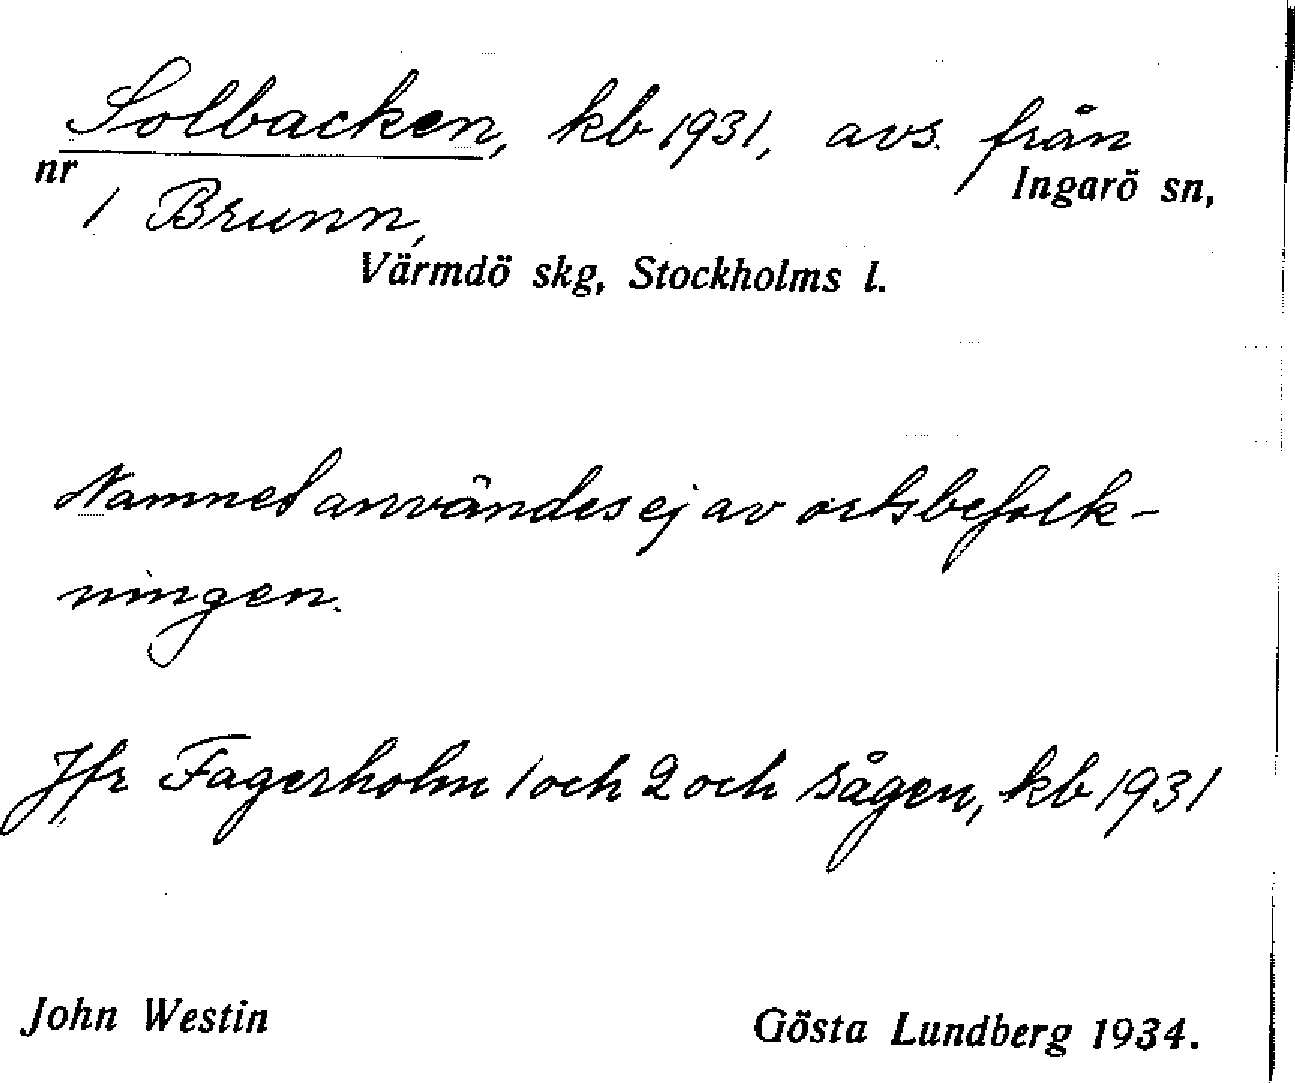 Solbacken, kb 1931, avs. från
nr Ingarö sn,
1 Brunn,
Värmdö skg, Stockholms l.
Namnet användes ej av ortsbefolk-
ningen.
Jfr Fagerholm 1 och 2 och sågen, kb 1931
John Westin Gösta Lundberg 1934.